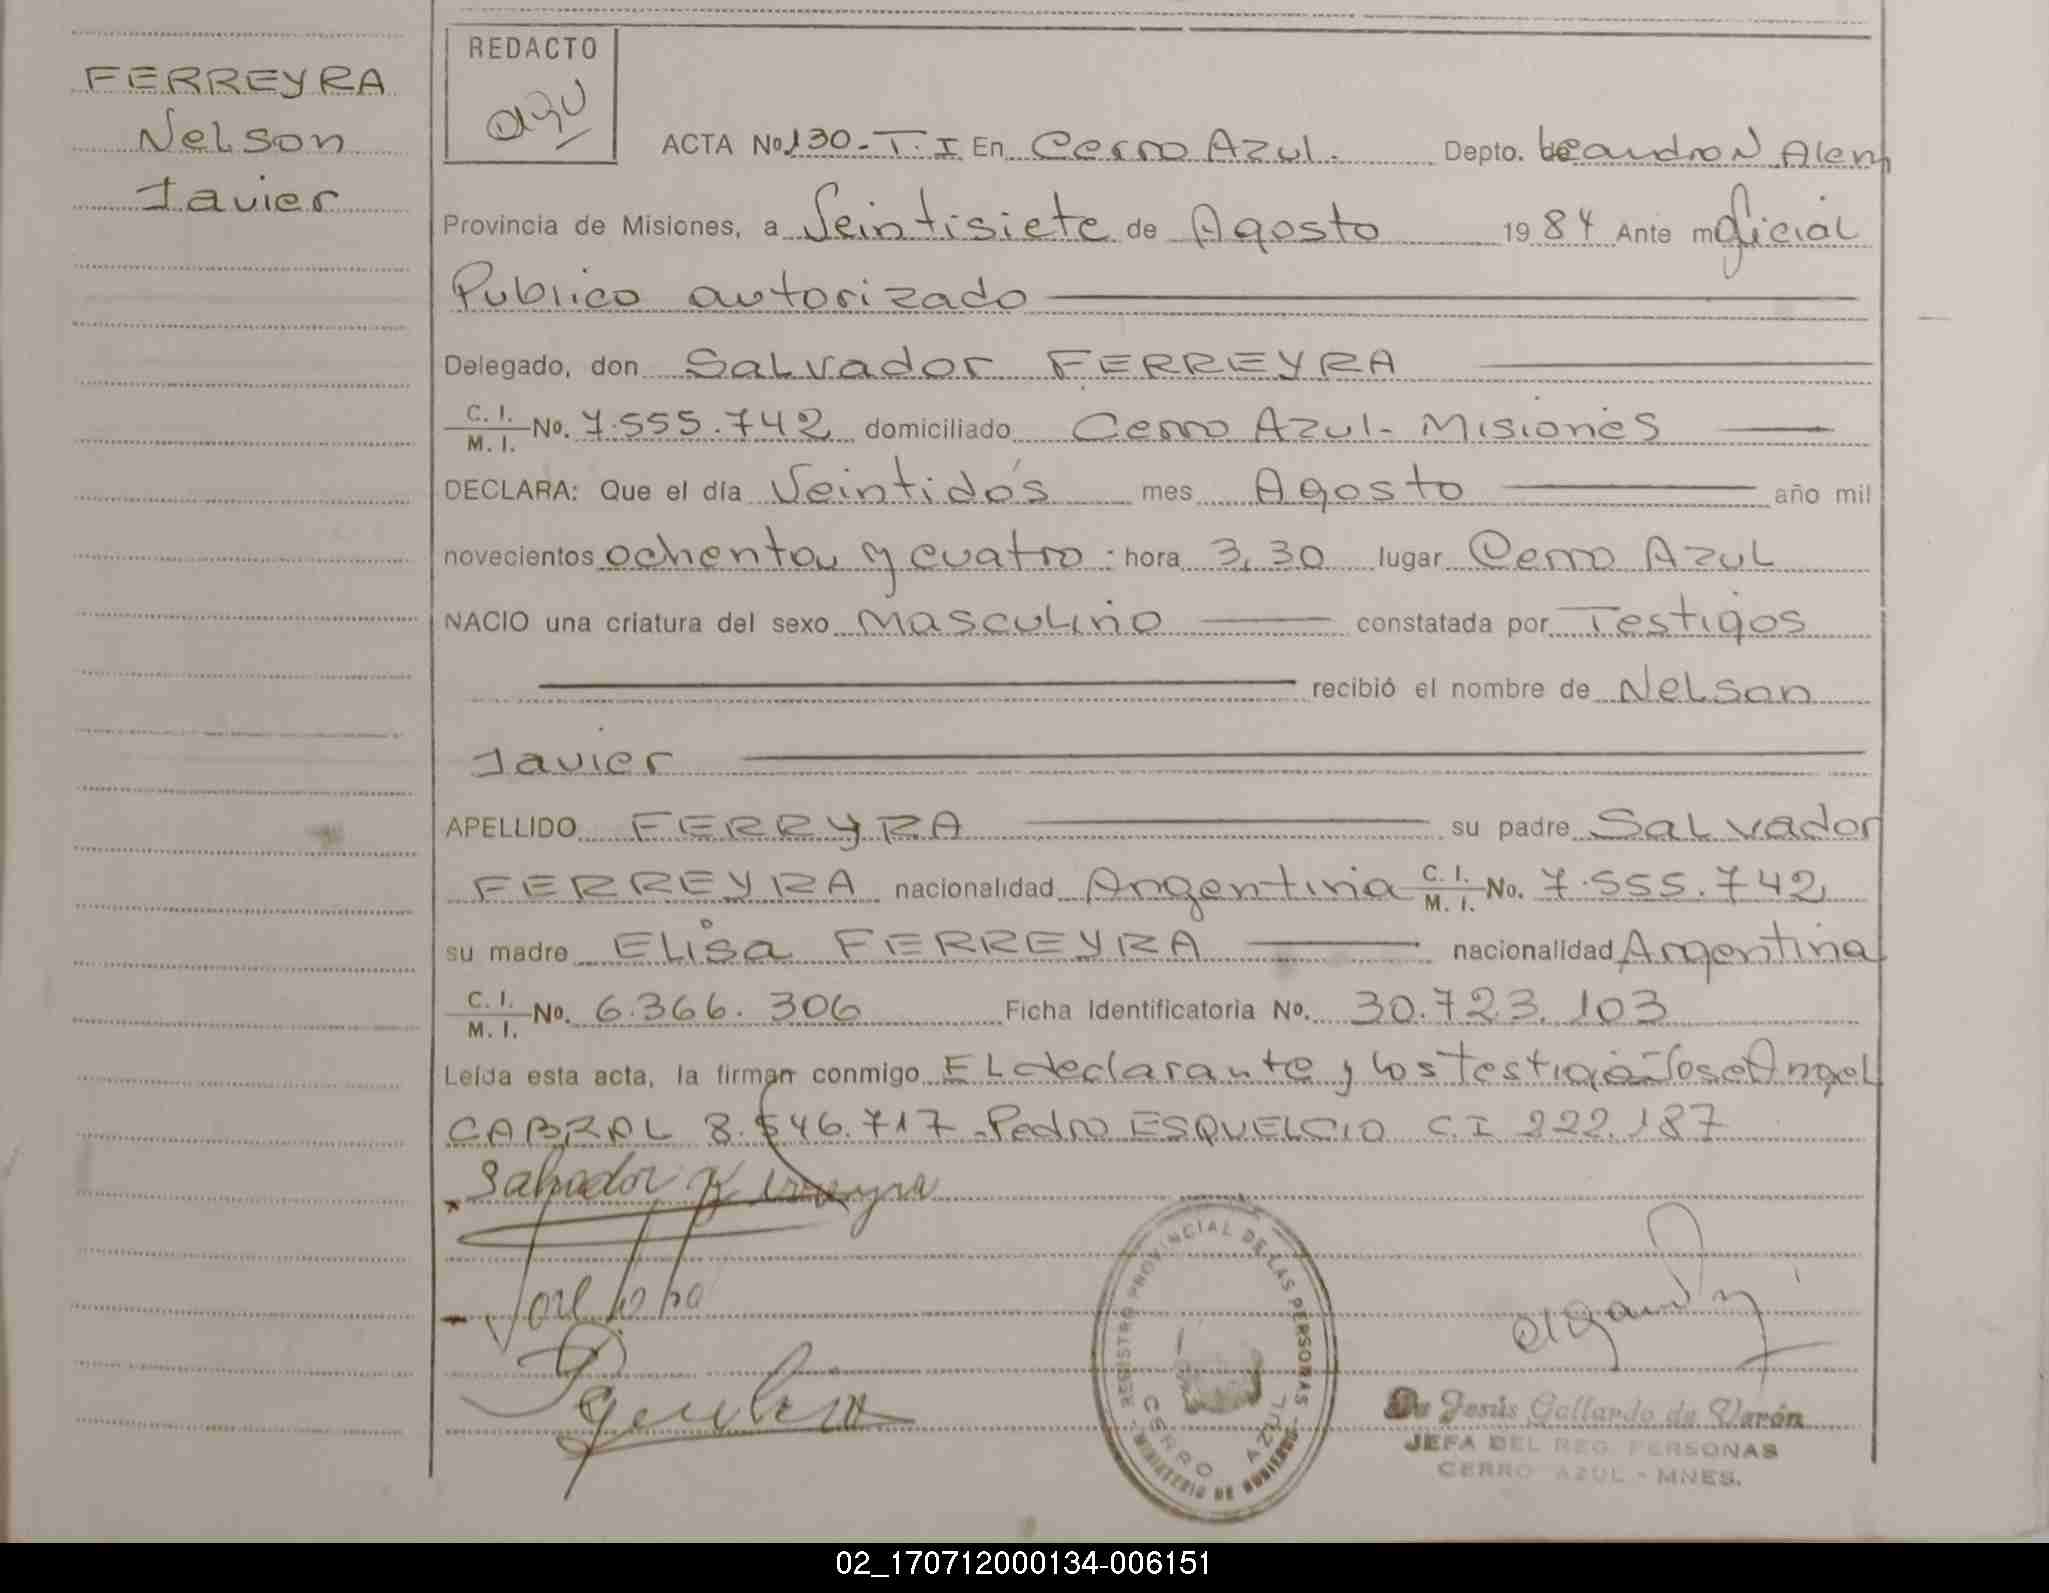 FERREYRA
Nelson
Javier
REDACTO
ACTA No. 130 - T. I En Cerro Azul. Depto. Leandro N Alem
Provincia de Misiones, a Veintisiete de Agosto 1984 Ante mi Oficial
Publico autorizado
Delegado, don Salvador FERREYRA
C. I. M. I. No. 7.555.742 domiciliado Cerro Azul - Misiones
DECLARA: Que el día Veintidós mes Agosto año mil
novecientos ochenta y cuatro : hora 3,30 lugar Cerro Azul
NACIO una criatura del sexo Masculino constatada por Testigos
recibió el nombre de Nelson
Javier
APELLIDO FERRYRA su padre Salvador
FERREYRA nacionalidad Argentina C. I. M. I. No. 7.555.742
su madre Elisa FERREYRA nacionalidad Argentina
C. I. M. I. No. 6.366.306 Ficha Identificatoria No. 30.723.103
Leída esta acta, la firman conmigo El declarante y los Testigos Jose Angel
CABRAL 8.546.717 - Pedro ESQUELCIO C.I 222.187
Salvador Ferreyra
REGISTRO PROVINCIAL DE LAS PERSONAS
CERRO AZUL
MINISTERIO DE GOBIERNO
Jesús Gallardo de Verón
JEFA DEL REG. PERSONAS
CERRO AZUL - MNES.
02_170712000134-006151